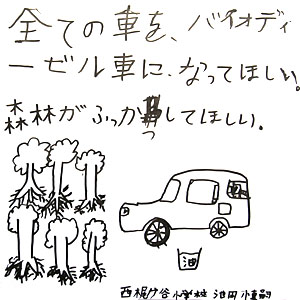 全ての車を、バイオディ
ーゼル車に、なってほしい。
森林がふっかつしてほしい。
油
西梶ヶ谷小学校 池田